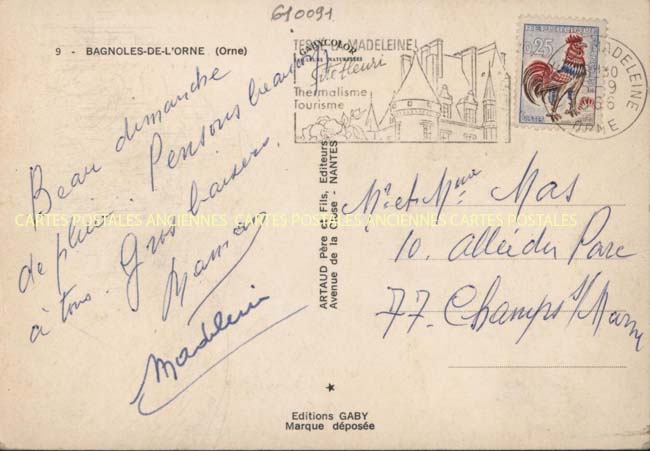 610091
9 - BAGNOLES-DE-L'ORNE (Orne)
GABYCOLOR
TESSÉ-LA-MADELEINE
Site fleuri
Thermalisme
Tourisme
0,25
MADELEINE
ORNE
Beau dimanche
de pluie. Pensons beaucoup
à tous. Gros baisers.
Maman
Madeleine
ARTAUD Père et Fils, Editeurs
Avenue de la Close - NANTES
Mr et Mme Mas
10. allée du Parc
77. Champs s/ Marne
CARTES POSTALES ANCIENNES CARTES POSTALES ANCIENNES CARTES POSTALES
Editions GABY
Marque déposée